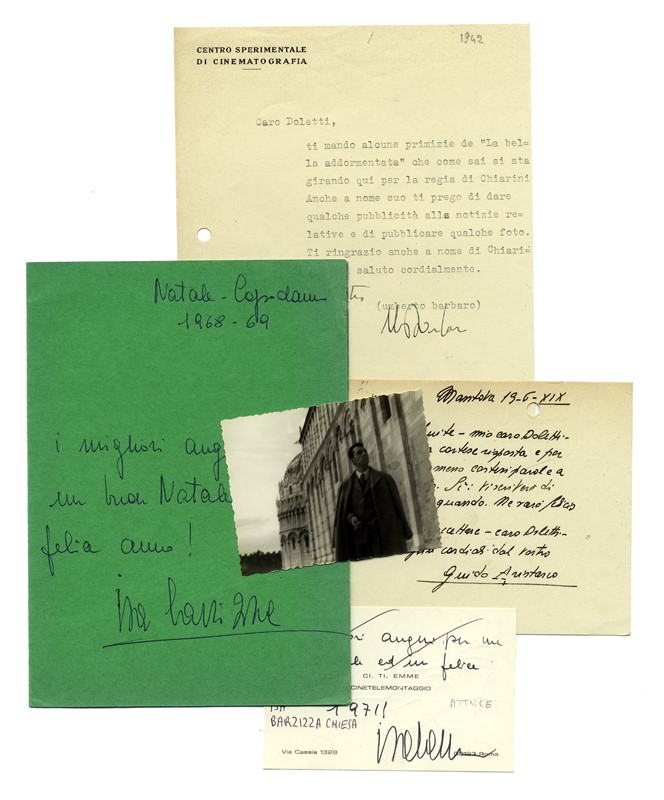 CENTRO SPERIMENTALE
DI CINEMATOGRAFIA
1942
Caro Doletti,
ti mando alcune primizie de "La bel=
la addormentata" che come sai si sta
girando qui per la regia di Chiarini
Anche a nome suo ti prego di dare
qualche pubblicità alla notizie re=
lative e di pubblicare qualche foto.
Ti ringrazio anche a nome di Chiari=
saluto cordialmente.
(umberto barbaro)
Natale - Capodanno
1968-69
i migliori aug
un buon Natale
felice anno!
Isa Barzizza
Mantova 19-6-XIX
mio caro Doletti-
cortese risposta e per
meno cortesi parole a
quando.
caro Doletti-
cordiali dal vostro
Guido Aristarco
auguri per un
ed un felice
CI. TI. EMME
CINETELEMONTAGGIO
1971!
ATTRICE
BARZIZZA CHIESA
Via Cassia 1328
Roma